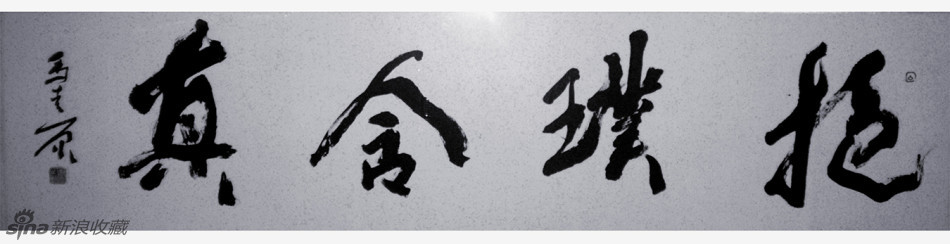 抱璞含真
sina 新浪收藏